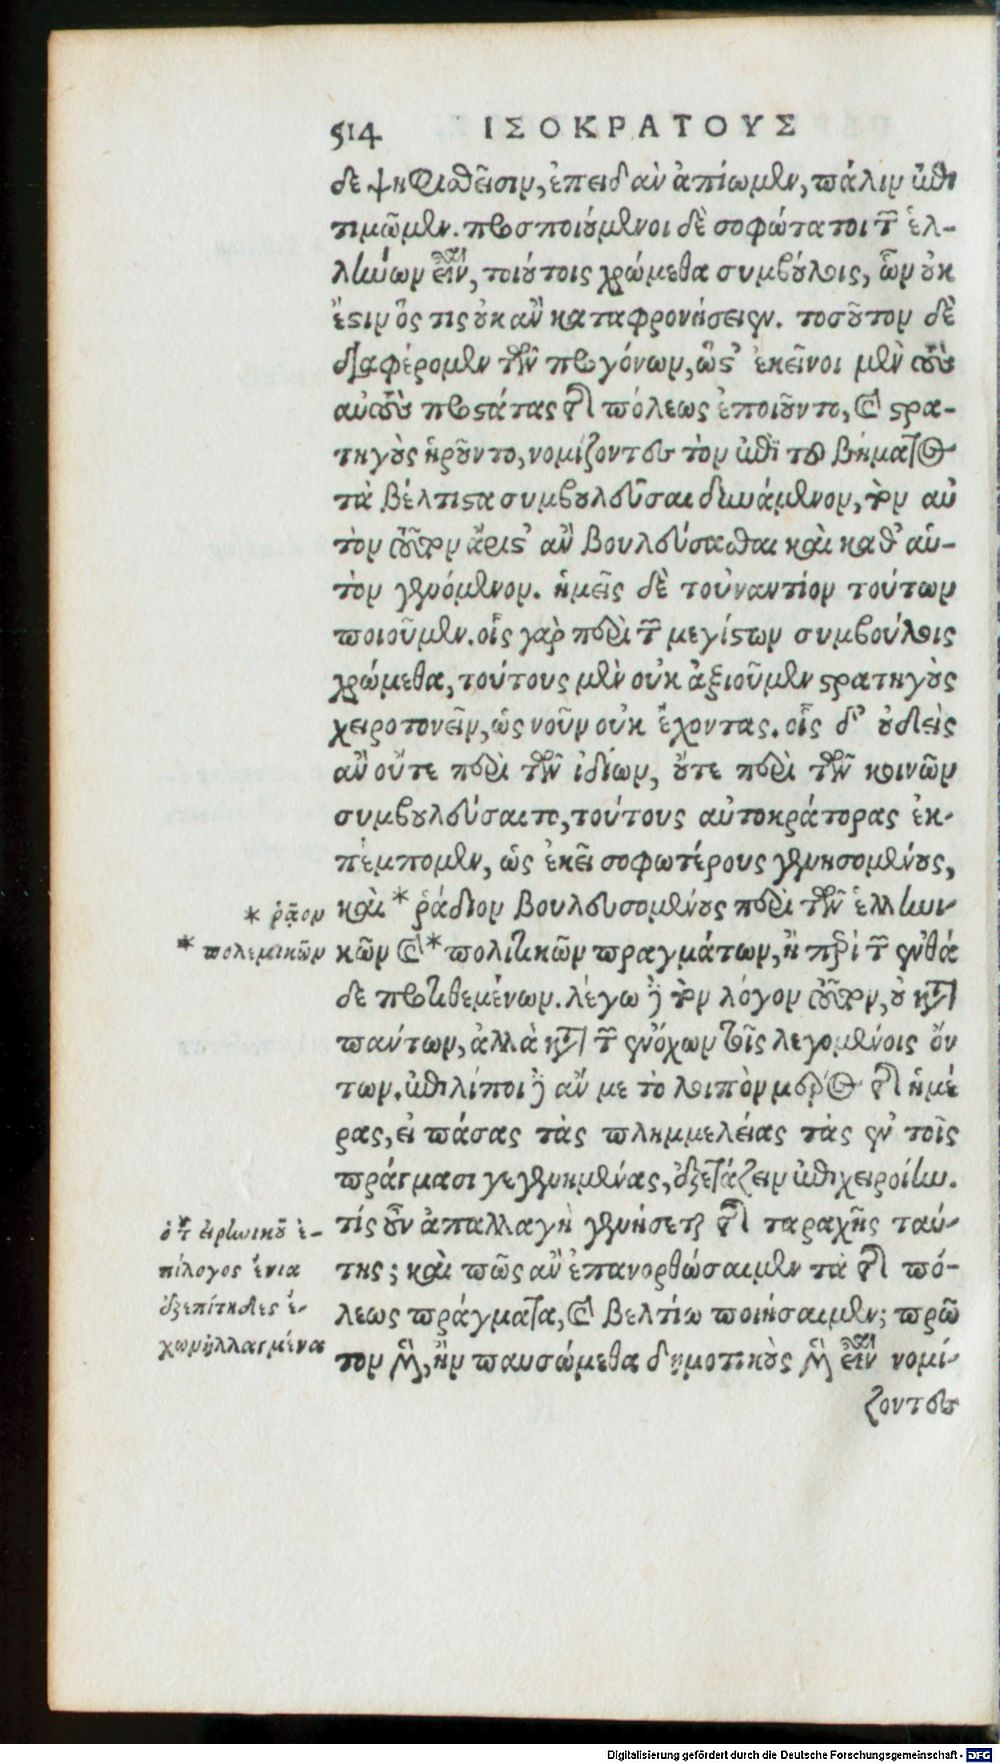 514 ΙΣΟΚΡΑΤΟΥΣ
δε ψηφισθεῖσιν, ἐπειδὰν ἀπίωμεν, πάλιν ἐπι
τιμῶμεν. προσποιούμενοι δὲ σοφώτατοι τῶν ἑλ-
λήνων εἶναι, τοιούτοις χρώμεθα συμβούλοις, ὧν οὐκ
ἔστιν ὅς τις οὐκ ἂν καταφρονήσειεν. τοσοῦτον δὲ
διαφέρομεν τῶν προγόνων, ὥστ' ἐκεῖνοι μὲν τοὺς
αὐτοὺς προστάτας τῆς πόλεως ἐποιοῦντο, καὶ στρα-
τηγοὺς ᾑροῦντο, νομίζοντες τὸν ἐπὶ τοῦ βήματος
τὰ βέλτιστα συμβουλεῦσαι δυνάμενον, τὸν αὐ
τὸν τοῦτον ἄριστ' ἂν βουλεύσασθαι καὶ καθ' αὑ-
τὸν γενόμενον. ἡμεῖς δὲ τοὐναντίον τούτων
ποιοῦμεν. οἷς γὰρ περὶ τῶν μεγίστων συμβούλοις
χρώμεθα, τούτους μὲν οὐκ ἀξιοῦμεν στρατηγοὺς
χειροτονεῖν, ὡς νοῦν οὐκ ἔχοντας. οἷς δ' οὐδεὶς
ἂν οὔτε περὶ τῶν ἰδίων, οὔτε περὶ τῶν κοινῶν
συμβουλεύσαιτο, τούτους αὐτοκράτορας ἐκ-
πέμπομεν, ὡς ἐκεῖ σοφωτέρους γενησομένους,
καὶ * ῥάδιον βουλευσομένους περὶ τῶν ἑλληνι-
* ῥᾷον
κῶν καὶ * πολιτικῶν πραγμάτων, ἢ περὶ τῶν ἐνθά
* πολεμικῶν
δε προτιθεμένων. λέγω δὲ τὸν λόγον τοῦτον, οὐ κατὰ
πάντων, ἀλλὰ κατὰ τῶν ἐνόχων τοῖς λεγομένοις ὄν
των. ἐπιλίποι δὲ ἄν με τὸ λοιπὸν μέρος τῆς ἡμέ
ρας, εἰ πάσας τὰς πλημμελείας τὰς ἐν τοῖς
πράγμασι γεγενημένας, ἐξετάζειν ἐπιχειροίην.
τίς οὖν ἀπαλλαγὴ γενήσεται τῆς ταραχῆς ταύ-
της; καὶ πῶς ἂν ἐπανορθώσαιμεν τὰ τῆς πό-
λεως πράγματα, καὶ βελτίω ποιήσαιμεν; πρῶ
τον μὲν, ἢν παυσώμεθα δημοτικοὺς μὲν εἶναι νομί-
ὁ τοῦ εἰρηνικοῦ ἐ-
πίλογος ἔνια
ἐξεπίτηδες ἔ-
χων ἠλλαγμένα
ζοντες
Digitalisierung gefördert durch die Deutsche Forschungsgemeinschaft - DFG